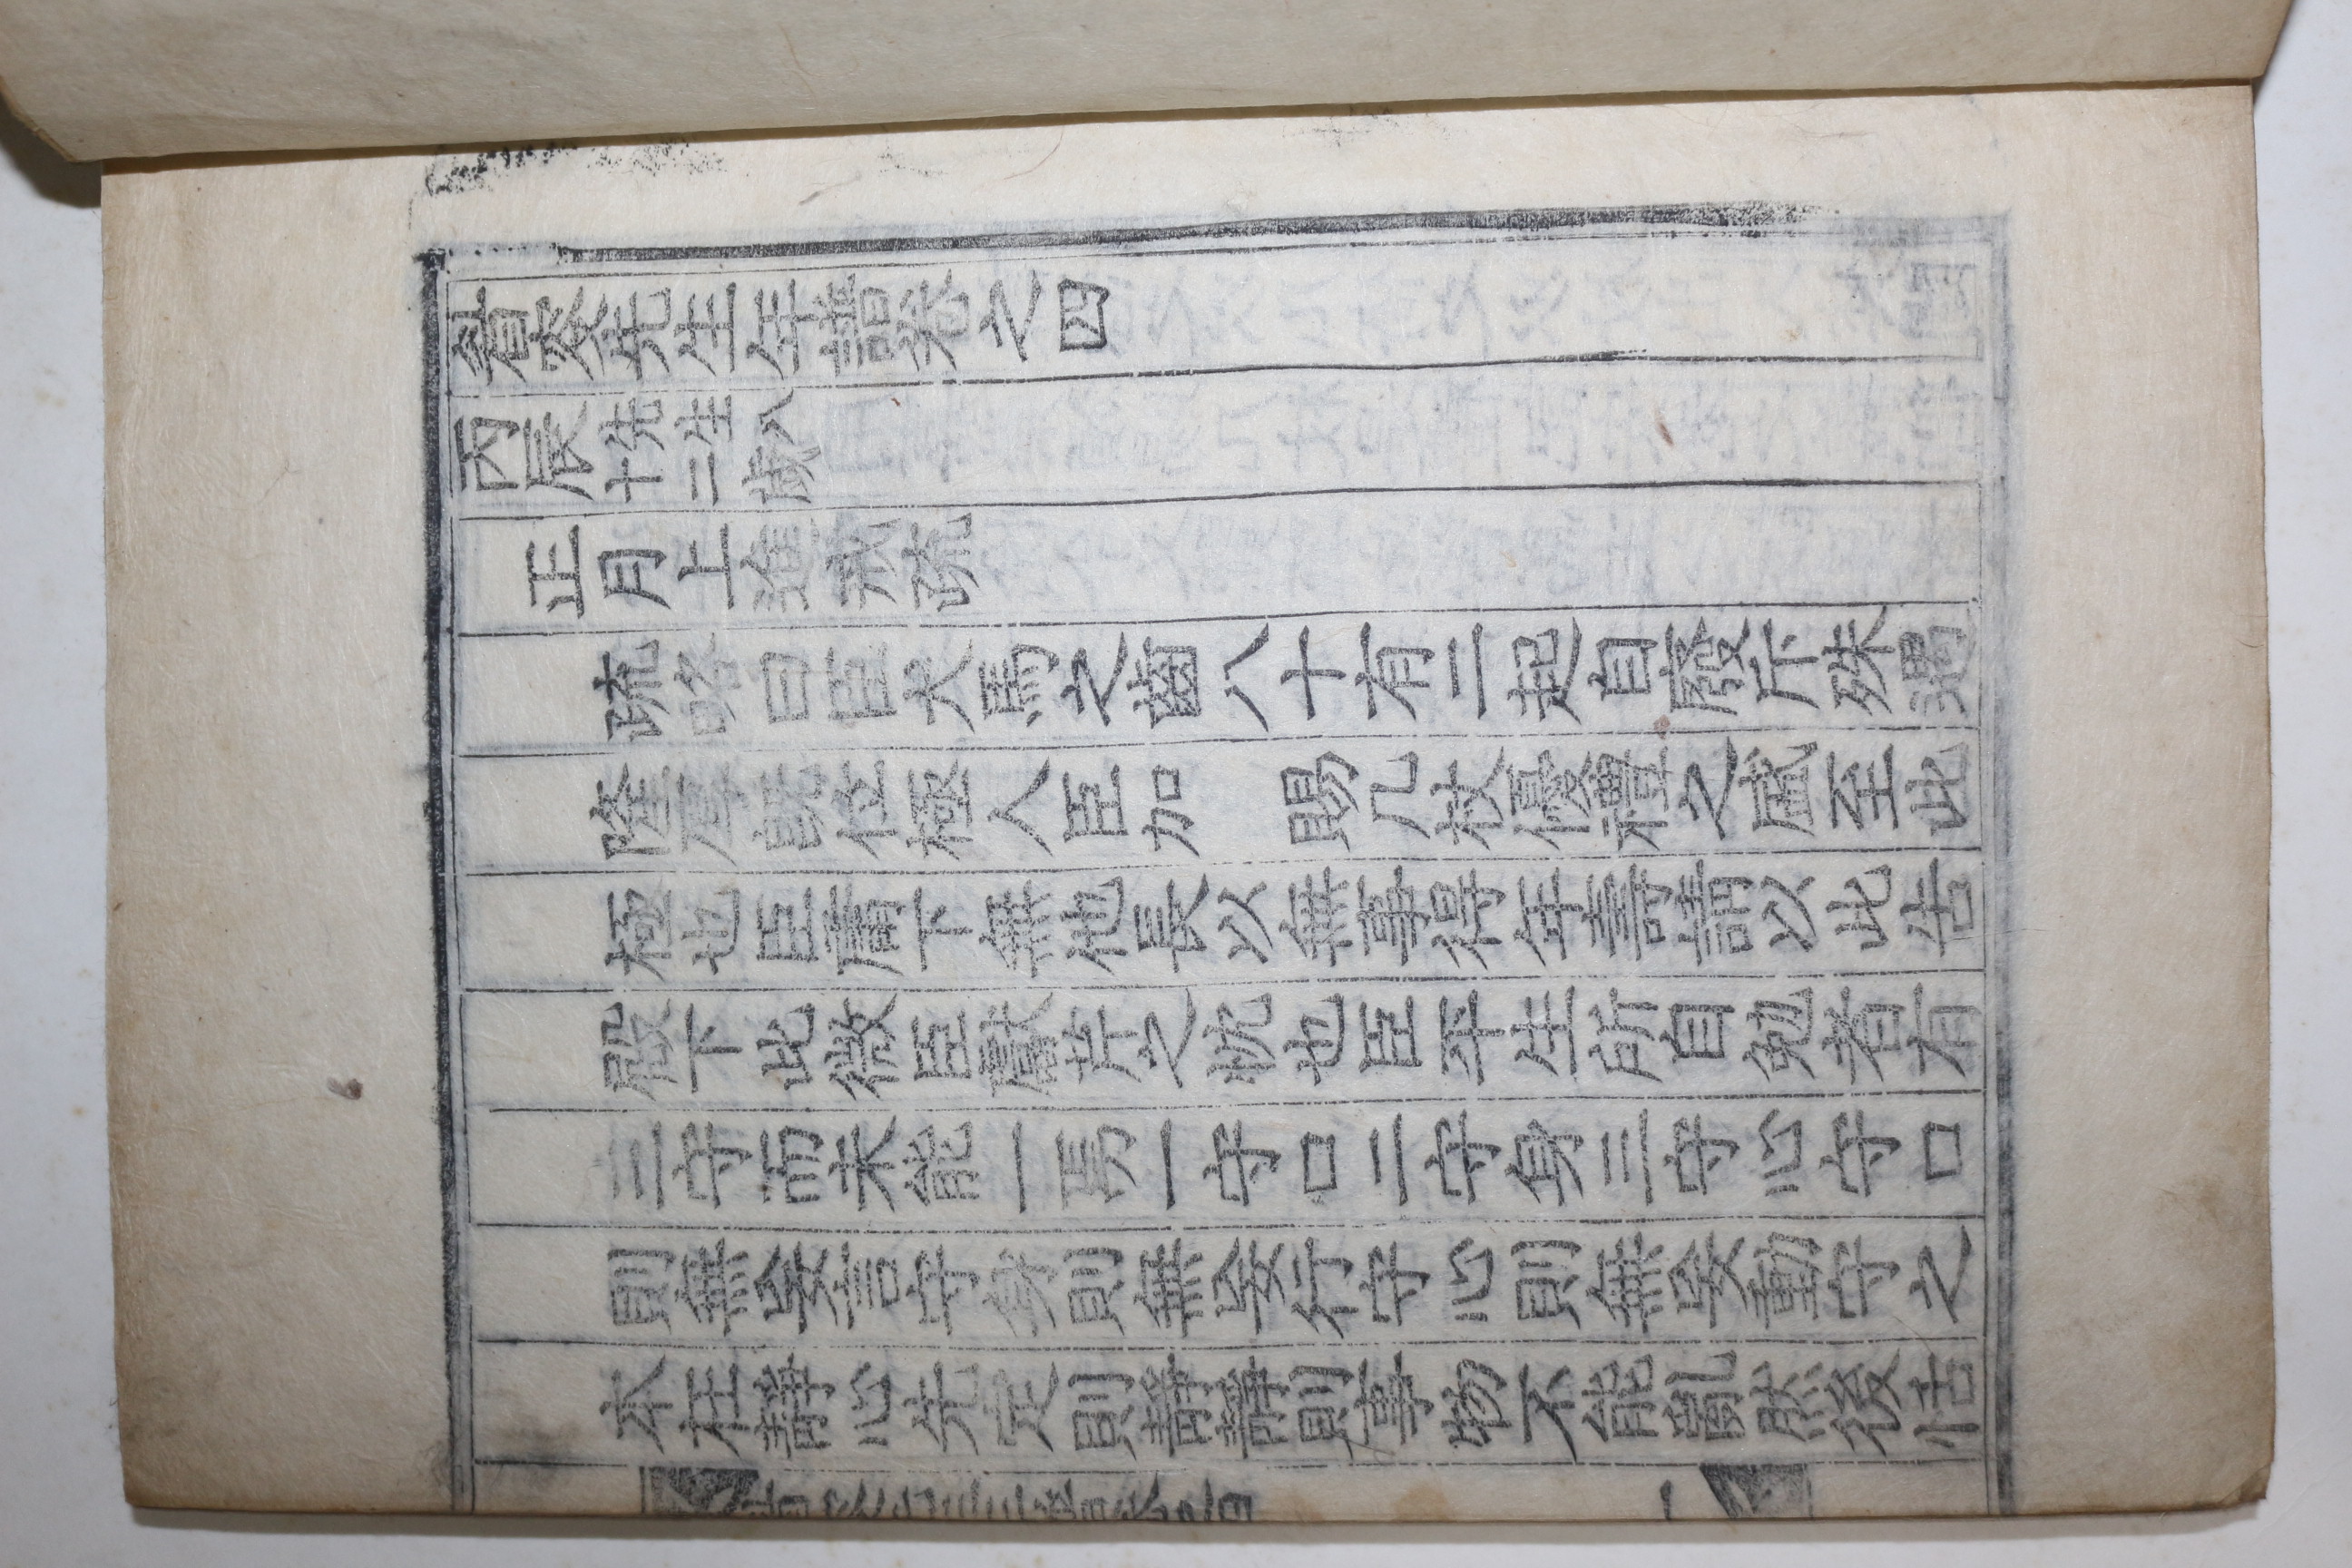 眷叟先生年譜卷之四
丙辰先生八十二歲
正月上進戒疏
疏略曰臣犬馬之齒八十有二起自廢斥殊遇
隆厚旣位極人臣加 賜几杖優禮之盛至此
極也臣庸下無他長以無事得年壽請以此告
殿下此微臣獻芹之忱也臣平生所自勉者有
三守而未能一焉一守口二守身三守心守口
則無妄言守身則無妄行守心則無妄動守之
本在靜心先定則靜靜則事物不能亂然後恬